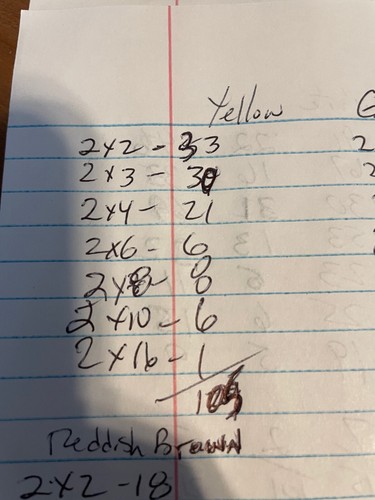 Yellow
2x2 - 33
2x3 -
2x4 - 21
2x6 - 6
2x8 - 8
2x10 - 6
2x16 - 1
Reddish Brown
2x2 - 18